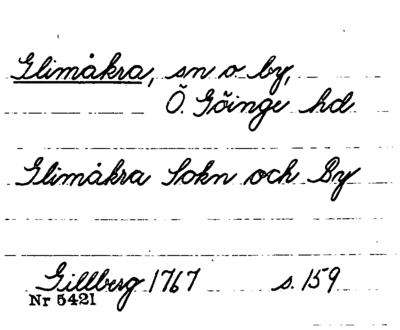 Glimåkra, sn o by,
Ö. Göinge hd
Glimåkra Sokn och By
Gillberg 1767 s. 159
Nr 5421